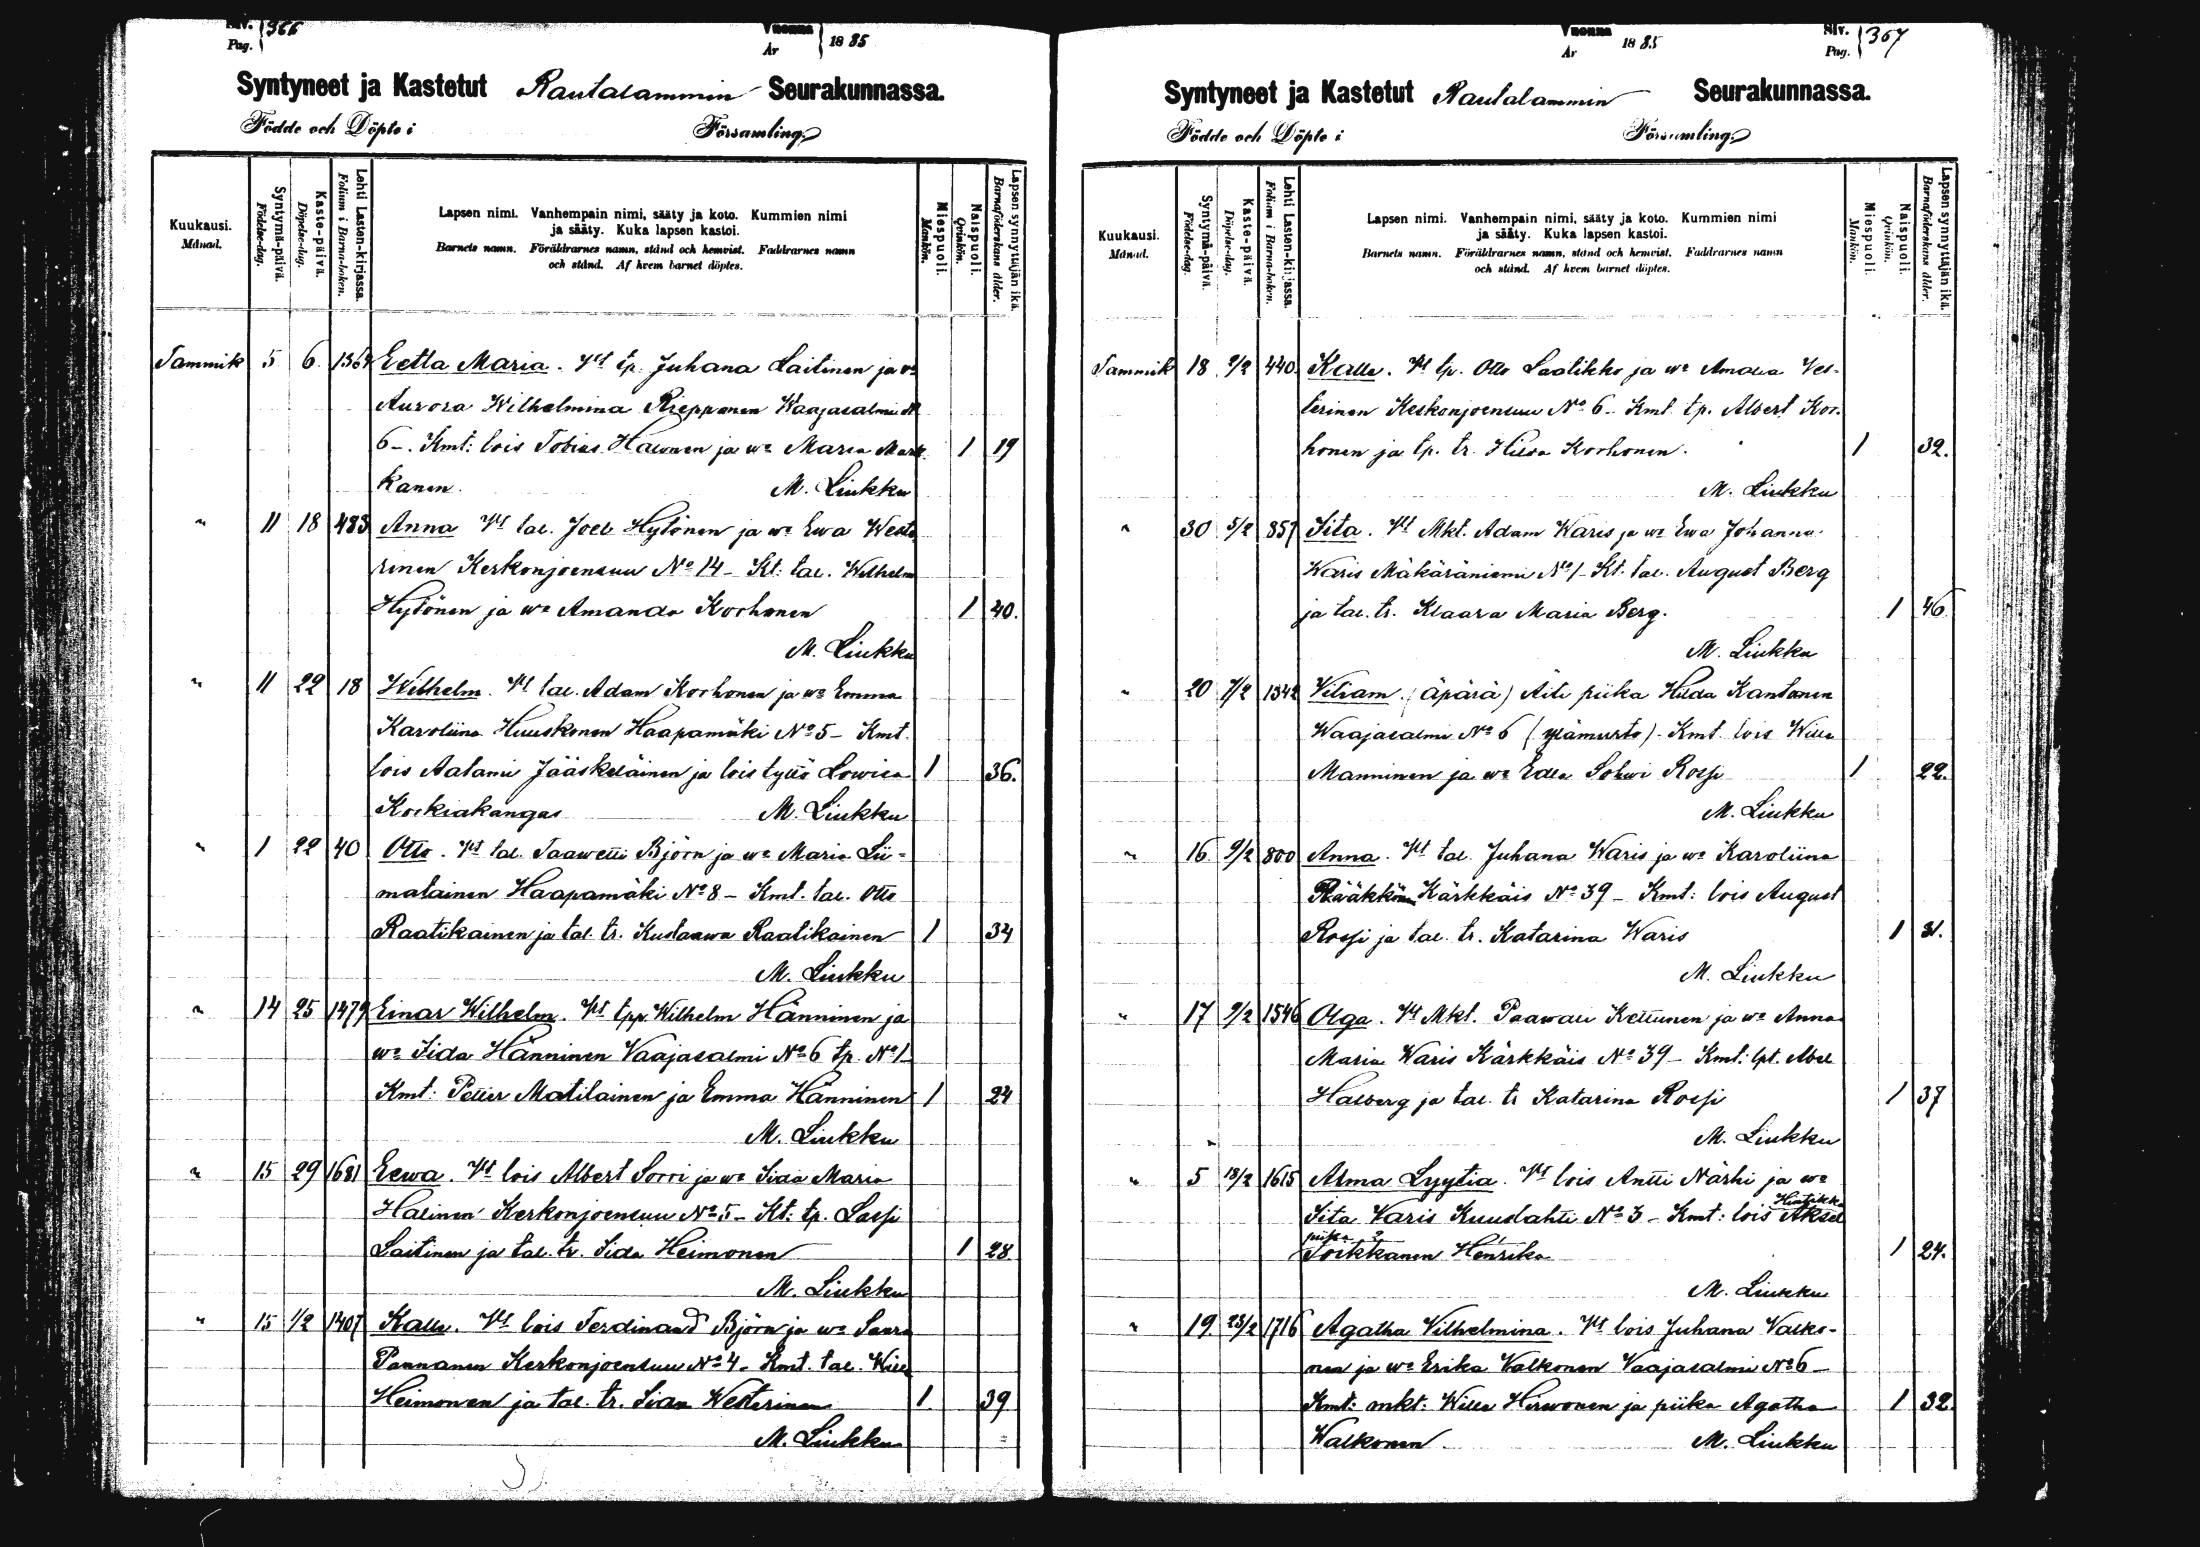 Siv. Pag. 366
Vuonna År 1885
Syntyneet ja Kastetut Rautalammin Seurakunnassa.
Födde och Döpte i Församling.
Kuukausi. Månad.
Syntymä-päivä. Födelse-dag.
Kaste-päivä. Döpelse-dag.
Lehti Lasten-kirjassa. Folium i Barna-boken.
Lapsen nimi. Vanhempain nimi, sääty ja koto. Kummien nimi
ja sääty. Kuka lapsen kastoi.
Barnets namn. Föräldrarnes namn, stånd och hemvist. Faddrarnes namn
och stånd. Af hvem barnet döptes.
Miespuoli. Mankön.
Naispuoli. Qvinkön.
Lapsen synnyttäjän ikä. Barnaföderskans ålder.
Tammik 5 6 1364 Eetla Maria. Vt tp. Juhana Laitinen ja wo
Aurora Wilhelmina Rieppanen Waajasalmi No
6 -. Kmt: lois Tobias Halonen ja wo Maria Mark 1 19
kanen. M. Liukku
" 11 18 483 Anna Vt tal. Joel Hytönen ja wo Ewa Weste
rinen Kerkonjoensuu No 14 - Kt: tal. Wilhelm
Hytönen ja wo Amanda Korhonen 1 40.
M. Liukku
" 11 22 18 Wilhelm. Vt tal. Adam Korhonen ja wo Emma
Karoliina Huuskonen Haapamäki No 5 - Kmt.
lois Aatami Jääskeläinen ja lois tyttö Lowisa 1 36.
Koskiakangas M. Liukku
" 1 22 40 Otto. Vt tal. Taawetti Björn ja wo Maria Lii-
matainen Haapamäki No 8 - Kmt. tal. Otto
Raatikainen ja tal. tr. Kustaawa Raatikainen 1 34
M. Liukku
" 14 25 1479 Einar Wilhelm. Vt tpp. Wilhelm Hänninen ja
wo Iida Hänninen Vaajasalmi No 6 tp. No 1
Kmt: Petter Matilainen ja Emma Hänninen 1 24
M. Liukku
" 15 29 1681 Eewa. Vt lois Albert Sorri ja wo Iida Maria
Halinen Kerkonjoensuu No 5 - Kt: tp. Lassi
Laitinen ja tal. tr. Iida Heimonen 1 28
M. Liukku
" 15 1/2 1407 Kalle. Vt lois Ferdinand Björn ja wo Saara
Pannanen Kerkonjoensuu No 4 - Kmt. tal. Wille
Heimonen ja tal. tr. Westerinen 1 39
M. Liukku
Vuonna År 1885
Siv. Pag. 367
Syntyneet ja Kastetut Rautalammin Seurakunnassa.
Födde och Döpte i Församling.
Kuukausi. Månad.
Syntymä-päivä. Födelse-dag.
Kaste-päivä. Döpelse-dag.
Lehti Lasten-kirjassa. Folium i Barna-boken.
Lapsen nimi. Vanhempain nimi, sääty ja koto. Kummien nimi
ja sääty. Kuka lapsen kastoi.
Barnets namn. Föräldrarnes namn, stånd och hemvist. Faddrarnes namn
och stånd. Af hvem barnet döptes.
Miespuoli. Mankön.
Naispuoli. Qvinkön.
Lapsen synnyttäjän ikä. Barnaföderskans ålder.
Tammik 18 2/2 440. Kalle. Vt tp. Otto Laatikko ja wo Amalia Ves-
terinen Keskonjoensuu No 6 - Kmt tp. Albert Kor-
honen ja tp. tr. Hilda Korhonen. 1 32.
M. Liukku
" 30 5/2 857 Iita. Vt Mkt. Adam Waris ja wo Ewa Johanna
Waris Mäkäräniemi No 1 - Kt. tal. August Berg
ja tal. tr. Klaara Maria Berg. 1 46
M. Liukku
" 20 7/2 1342 Viliam. (äpärä) Äiti piika Hilda Kantanen
Waajasalmi No 6 (ylämurto) - Kmt lois Wille
Manninen ja wo Edla Sohwi Rossi 1 22.
M. Liukku
" 16 9/2 800 Anna. Vt tal. Juhana Waris ja wo Karoliina
Pääkkönen Kärkkäis No 39 - Kmt: lois August
Rossi ja tal. tr. Katarina Waris 1 31.
M. Liukku
" 17 9/2 1546 Olga. Vt Mkt. Paawali Kettunen ja wo Anna
Maria Waris Kärkkäis No 39 - Kmt: lpt. Abel
Halberg ja tal. tr Katarina Rossi 1 37
M. Liukku
" 5 18/2 1615 Alma Lyytia. Vt lois Antti Närhi ja wo
Iita Varis Kuuslahti No 3 - Kmt: lois Aksel Hintikka
piika ? Toikkanen Henrika 1 24.
M. Liukku
" 19 23/2 1716 Agatha Vilhelmina. Vt lois Juhana Valko-
nen ja wo Erika Valkonen Vaajasalmi No 6 -
Kmt: mkt: Wille Hirwonen ja piika Agatha 1 32.
Walkonen. M. Liukku